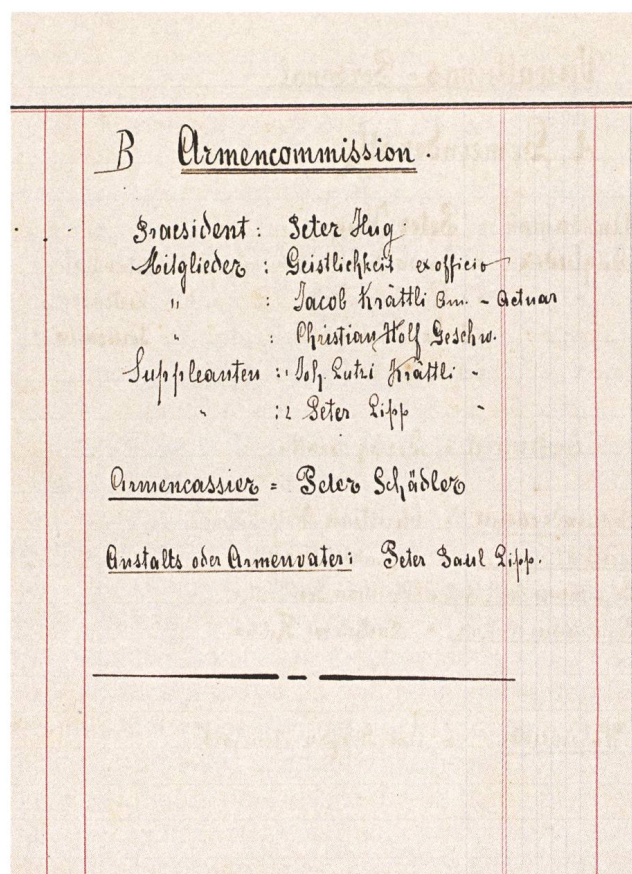 B Armencommission.
Praesident : Peter Hug
Mitglieder : Geistlichkeit ex officio
" : Jacob Krättli Am. - Actuar
" : Christian Wolf Geschw.
Suppleanten : 1 Joh. Lutzi Krättli -
" : 2 Peter Lipp -
Armencassier = Peter Schädler
Anstalts oder Armenvater : Peter Paul Lipp.